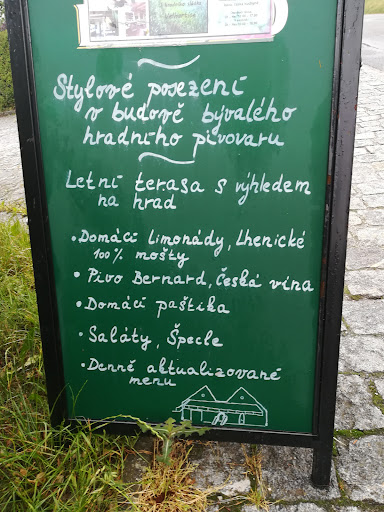 Stylové posezení
v budově bývalého
hradního pivovaru
Letní terasa s výhledem
na hrad
• Domácí limonády, Lhenické
100% mošty
• Pivo Bernard, česká vína
• Domácí paštika
• Saláty, Špecle
• Denně aktualizované
menu